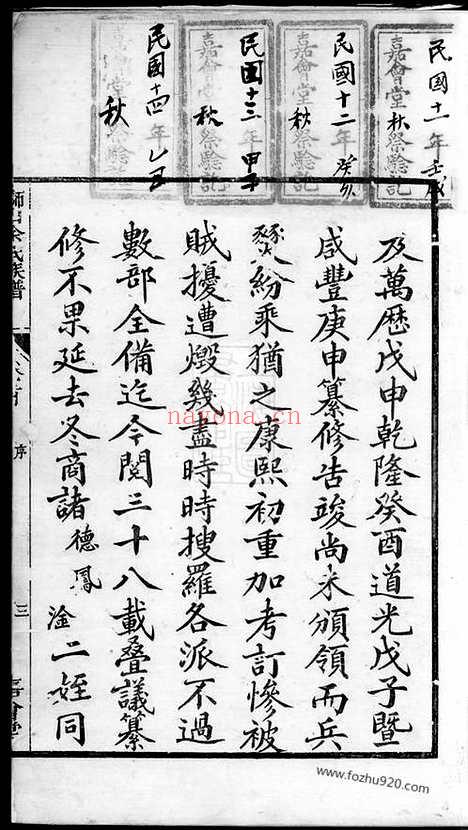 民國十一年壬戌
嘉會堂秋祭驗訖
民國十二年癸亥
嘉會堂秋祭驗訖
民國十三年甲子
嘉會堂秋祭驗訖
民國十四年乙丑
秋
及萬歷戊申乾隆癸酉道光戊子暨
咸豐庚申纂修告竣尚未頒領而兵
燹紛乘猶之康熙初重加考訂慘被
賊擾遭燬幾盡時時搜羅各派不過
數部全備迄今閱三十八載叠議纂
修不果延去冬商諸德鳳淦二姪同
余氏族譜
序
三
嘉會堂
nayona.cn
www.fozhu920.com